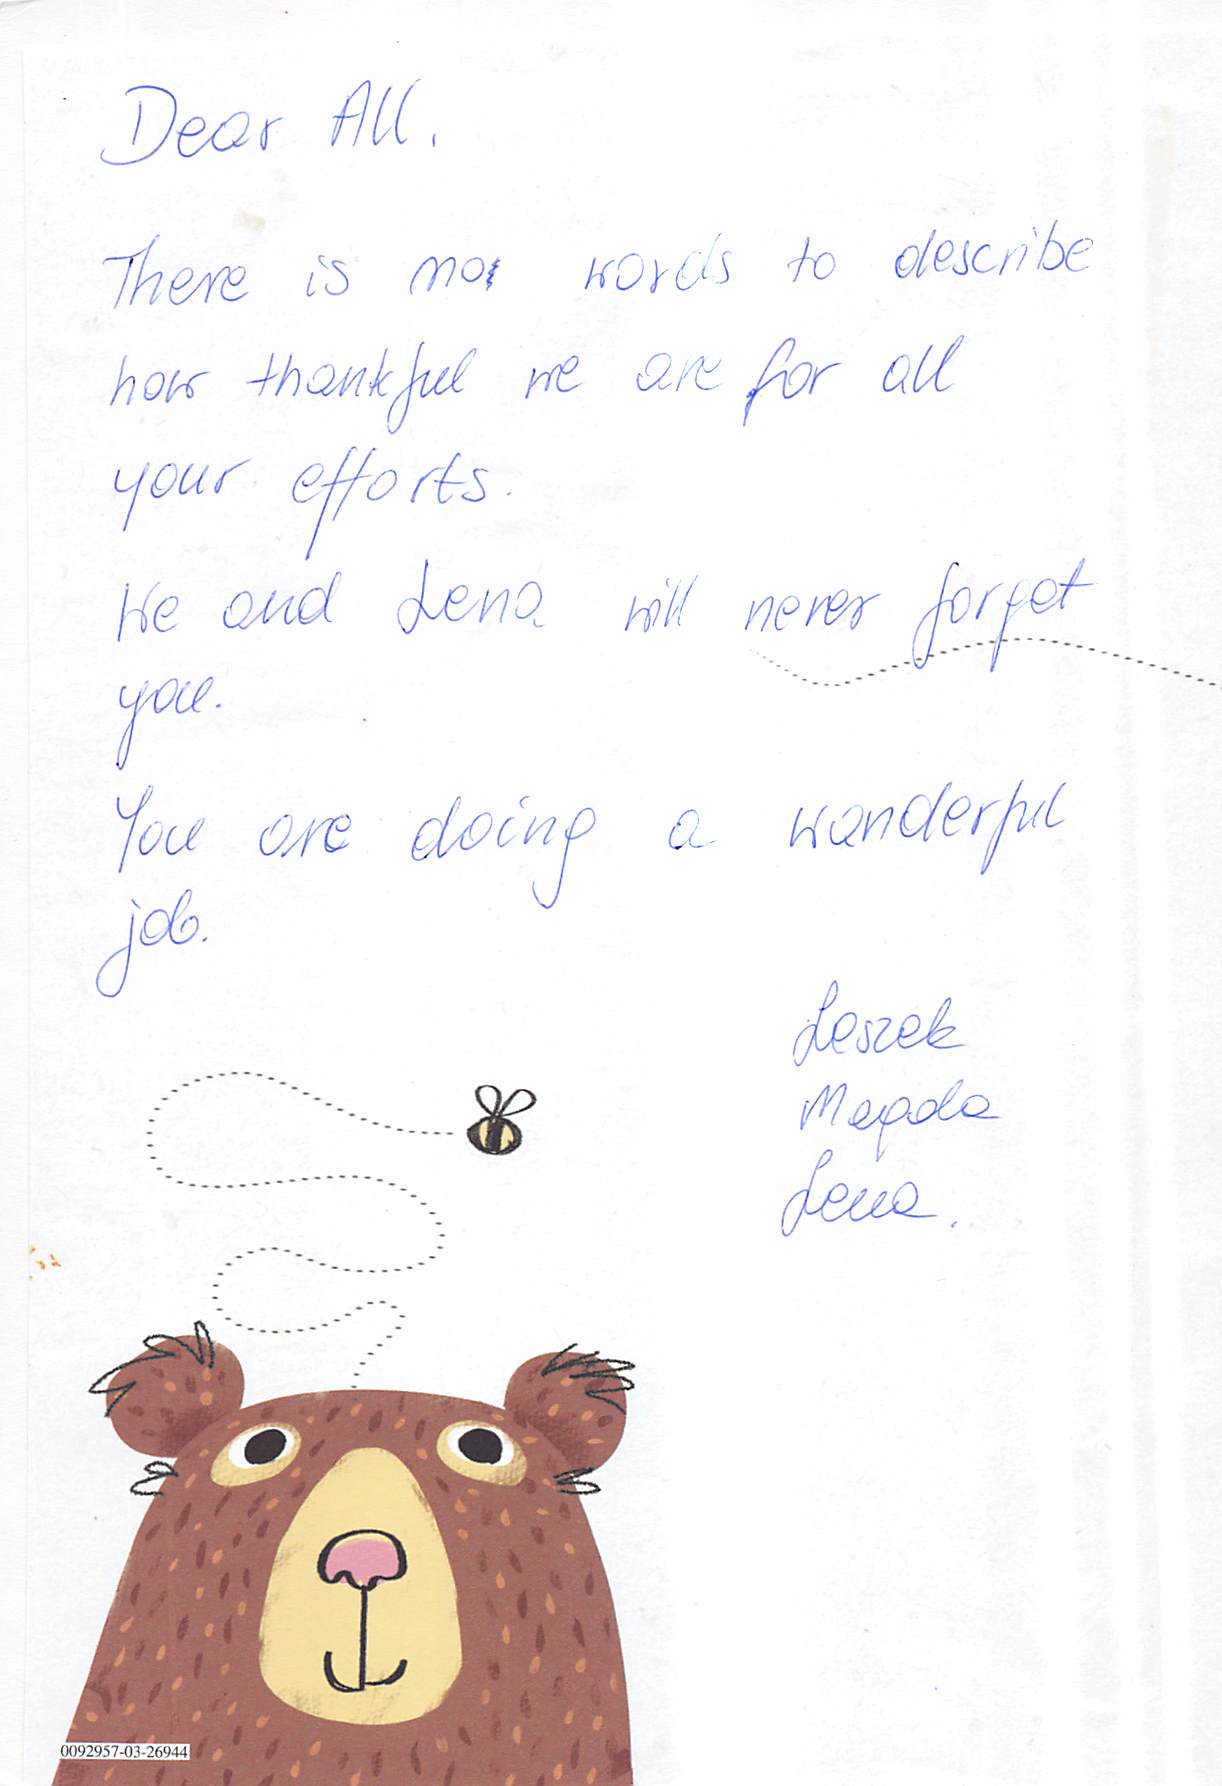 Dear All.
There is no words to describe
how thankful we are for all
your efforts.
We and Lena will never forget
you.
You are doing a wonderful
job.
Leszek
Magda
Lena.
0092957-03-26944